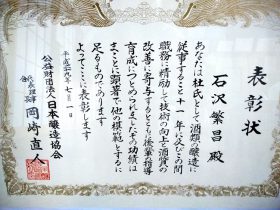 表彰状
石沢繁昌殿
あなたは杜氏として酒類の醸造に
従事すること十一年に及びこの間
職務に精励して技術の向上と酒質の
改善に寄与するとともに後輩の指導
育成につとめられましたその功績は
まことに顕著で他の模範とするに
足るものであります
よってここに表彰します
平成二十九年七月一日
公益財団法人日本醸造協会
代表理事 岡崎直人